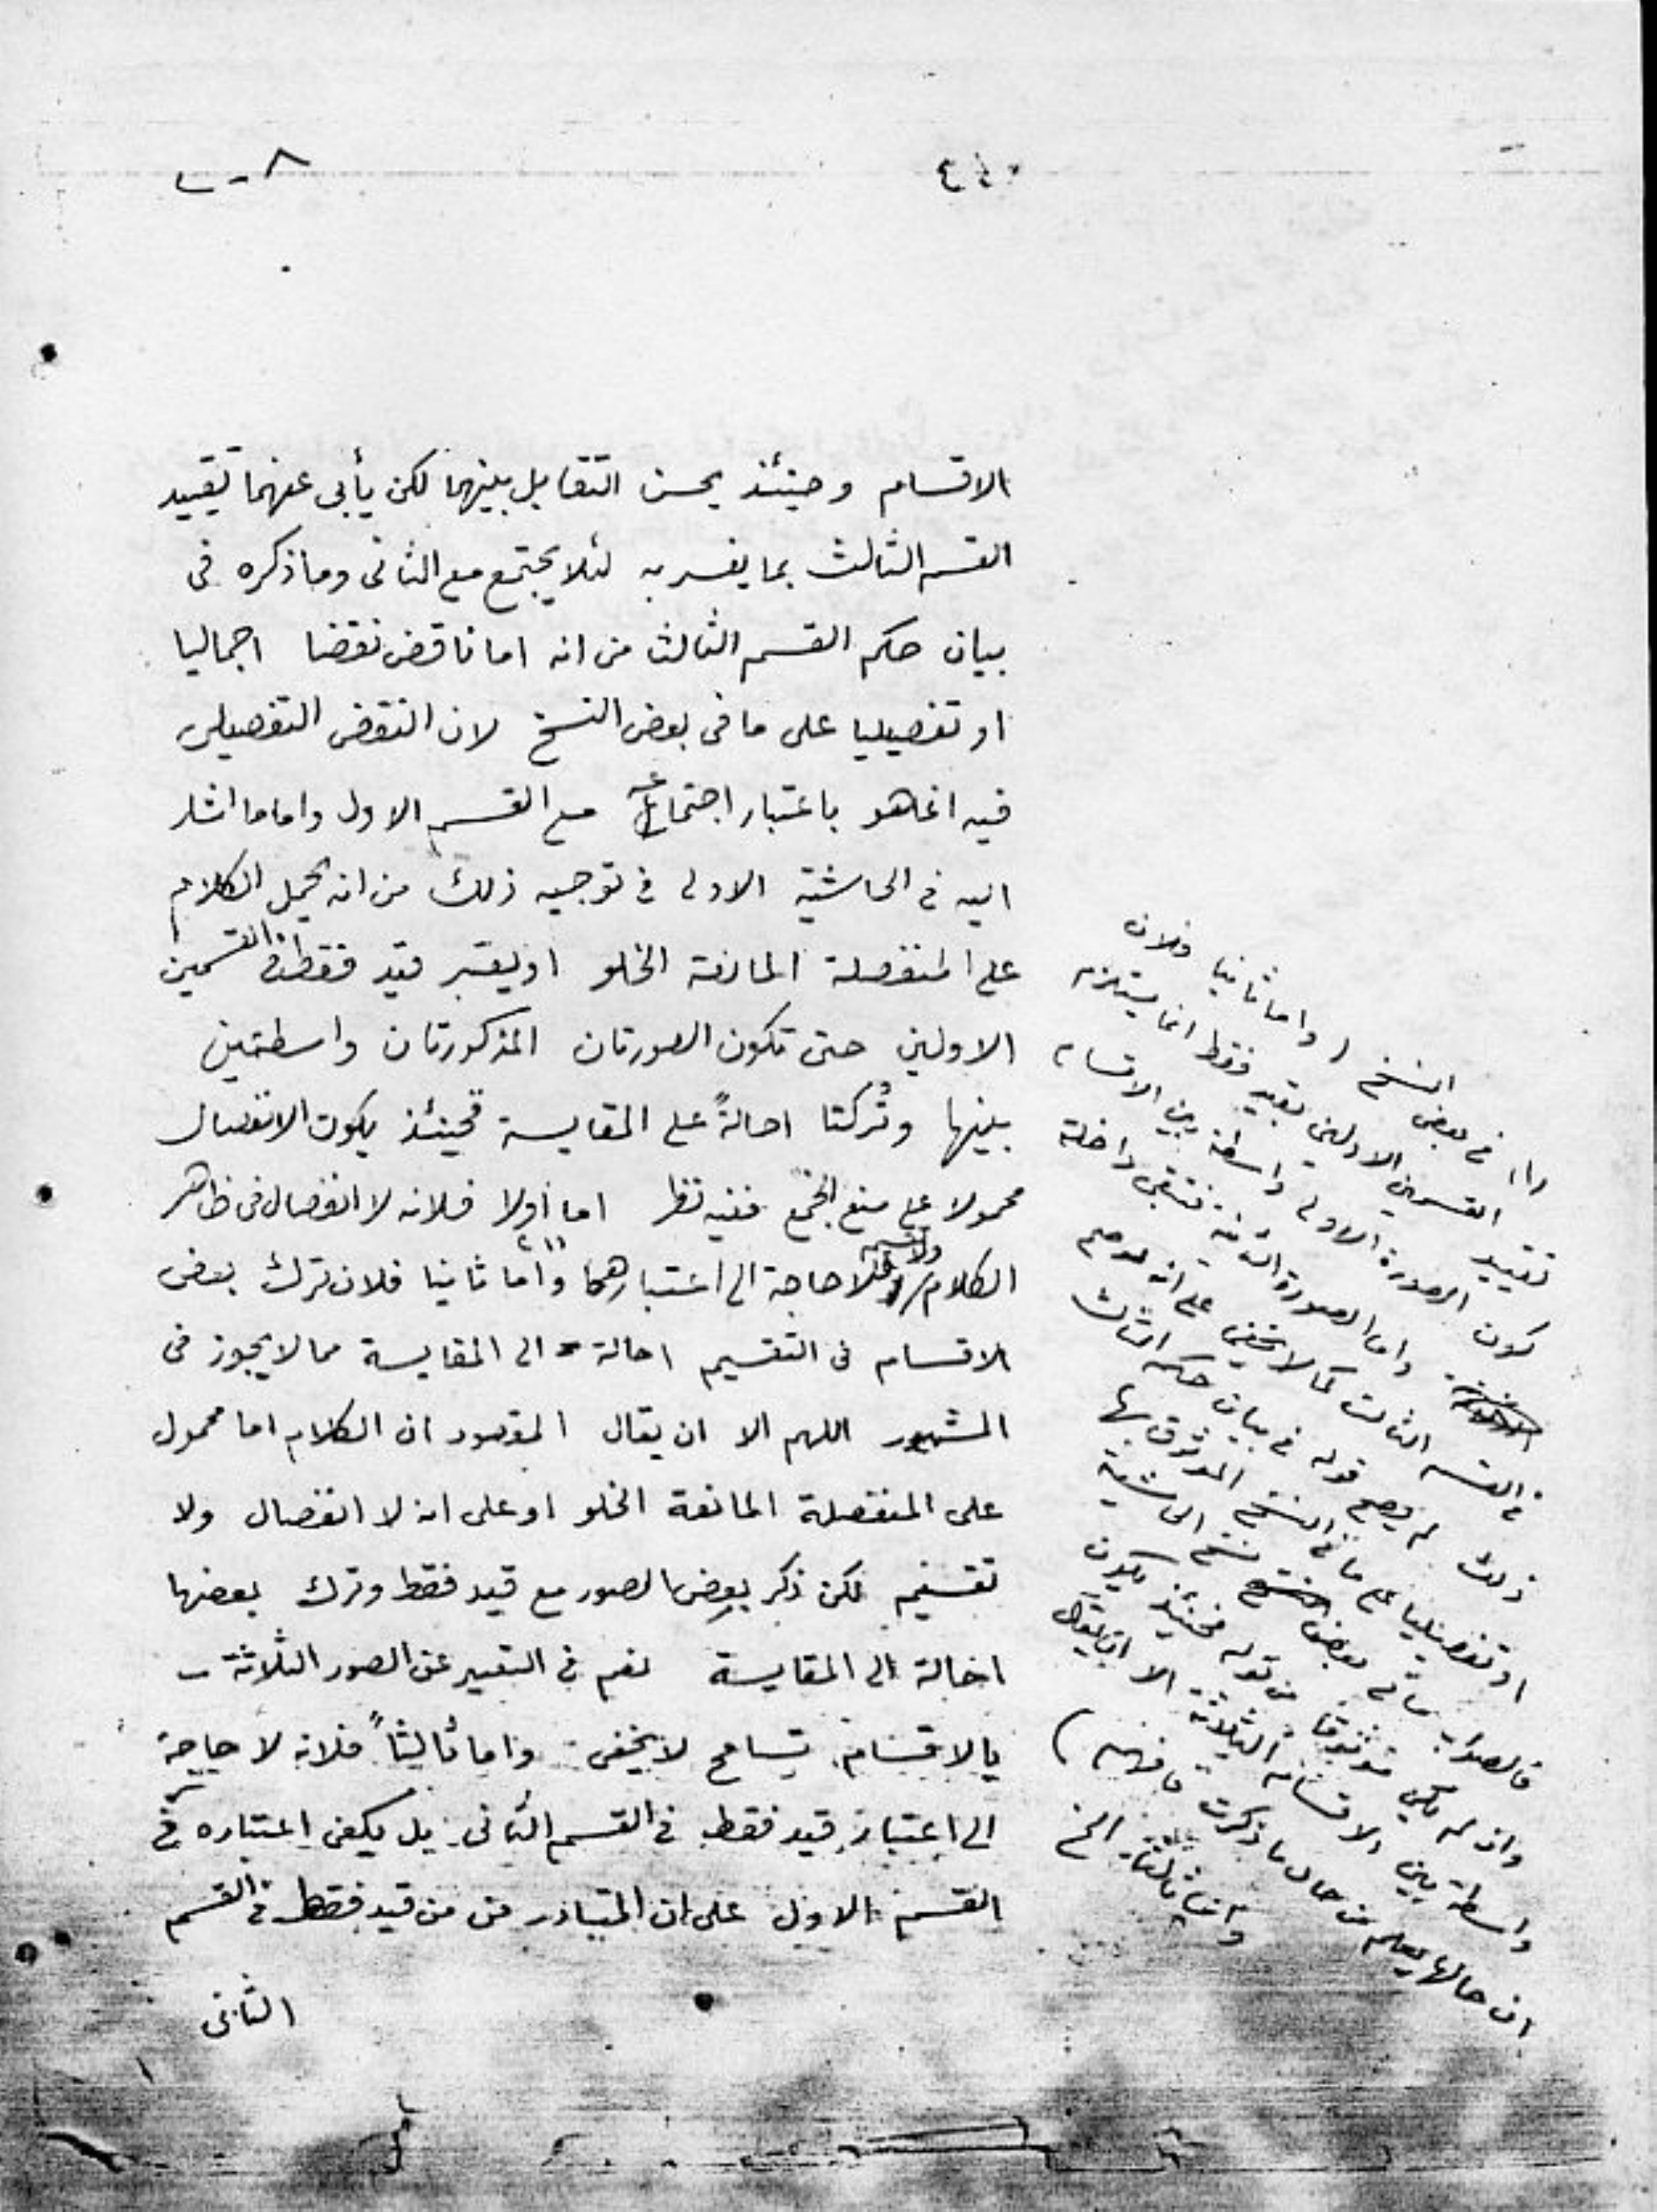 الاقسام وحينئذ يحسن التقابل بينهما لكن يأبى عنهما تقييد
القسم الثالث بما يفسر به لئلا يجتمع مع الثانى وما ذكره فى
بيان حكم القسم الثالث من انه اما ناقض نقضا اجماليا
او تفصيليا على ما فى بعض النسخ لان النقض التفصيلى
فيه انما هو باعتبار اجتماعه مع القسم الاول واما ما اشار
اليه فى الحاشية الاولى فى توجيه ذلك من انه يحمل الكلام
على المنفصلة المانعة الخلو او يعتبر قيد فقط فى القسمين
الاولين حتى تكون الصورتان المذكورتان واسطتين
بينها وتُركتا احالةً على المقايسة فحينئذ يكون الانفصال
محمولا على منع الجمع ففيه نظر اما اولا فلانه لا انفصال فى ظاهر
الكلام ولا تقسيم فلا حاجة الى اعتبارهما واما ثانيا فلان ترك بعض
الاقسام فى التقسيم احالة الى المقايسة مما لا يجوز فى
المشهور اللهم الا ان يقال المقصود ان الكلام اما محمول
على المنفصلة المانعة الخلو او على انه لا انفصال ولا
تقسيم لكن ذكر بعض الصور مع قيد فقط وترك بعضها
احالة الى المقايسة نعم فى التعبير عن الصور الثلاثة
بالاقسام تسامح لا يخفى واما ثالثاً فلانه لا حاجة
الى اعتبار قيد فقط فى القسم الثانى بل يكفى اعتباره فى
القسم الاول على ان المتبادر من من قيد فقط فى القسم
الثانى
(١) فى بعض النسخ (واما ثانيا فلان
تقييد القسمين الاولين بقيد فقط انما يستلزم
كون الصورة الاولى واسطة بين الاقسام
واما الصورة الثانية فتبقى داخلة
فى القسم الثالث كما لا يخفى على انه لو صح
ذلك لم يصح قوله فى بيان حكم الثالث
او تفصيليا على ما فى النسخ الموثوق بها
فالصواب ما فى بعض نسخ الحاشية
وان لم يكن موثوقا من قوله فحينئذ يكون
واسطة بين الاقسام الثلاثة الا ان يقال
ان حالها يعلم من حال ما ذكرت فافهم)
واما ثالثا الخ